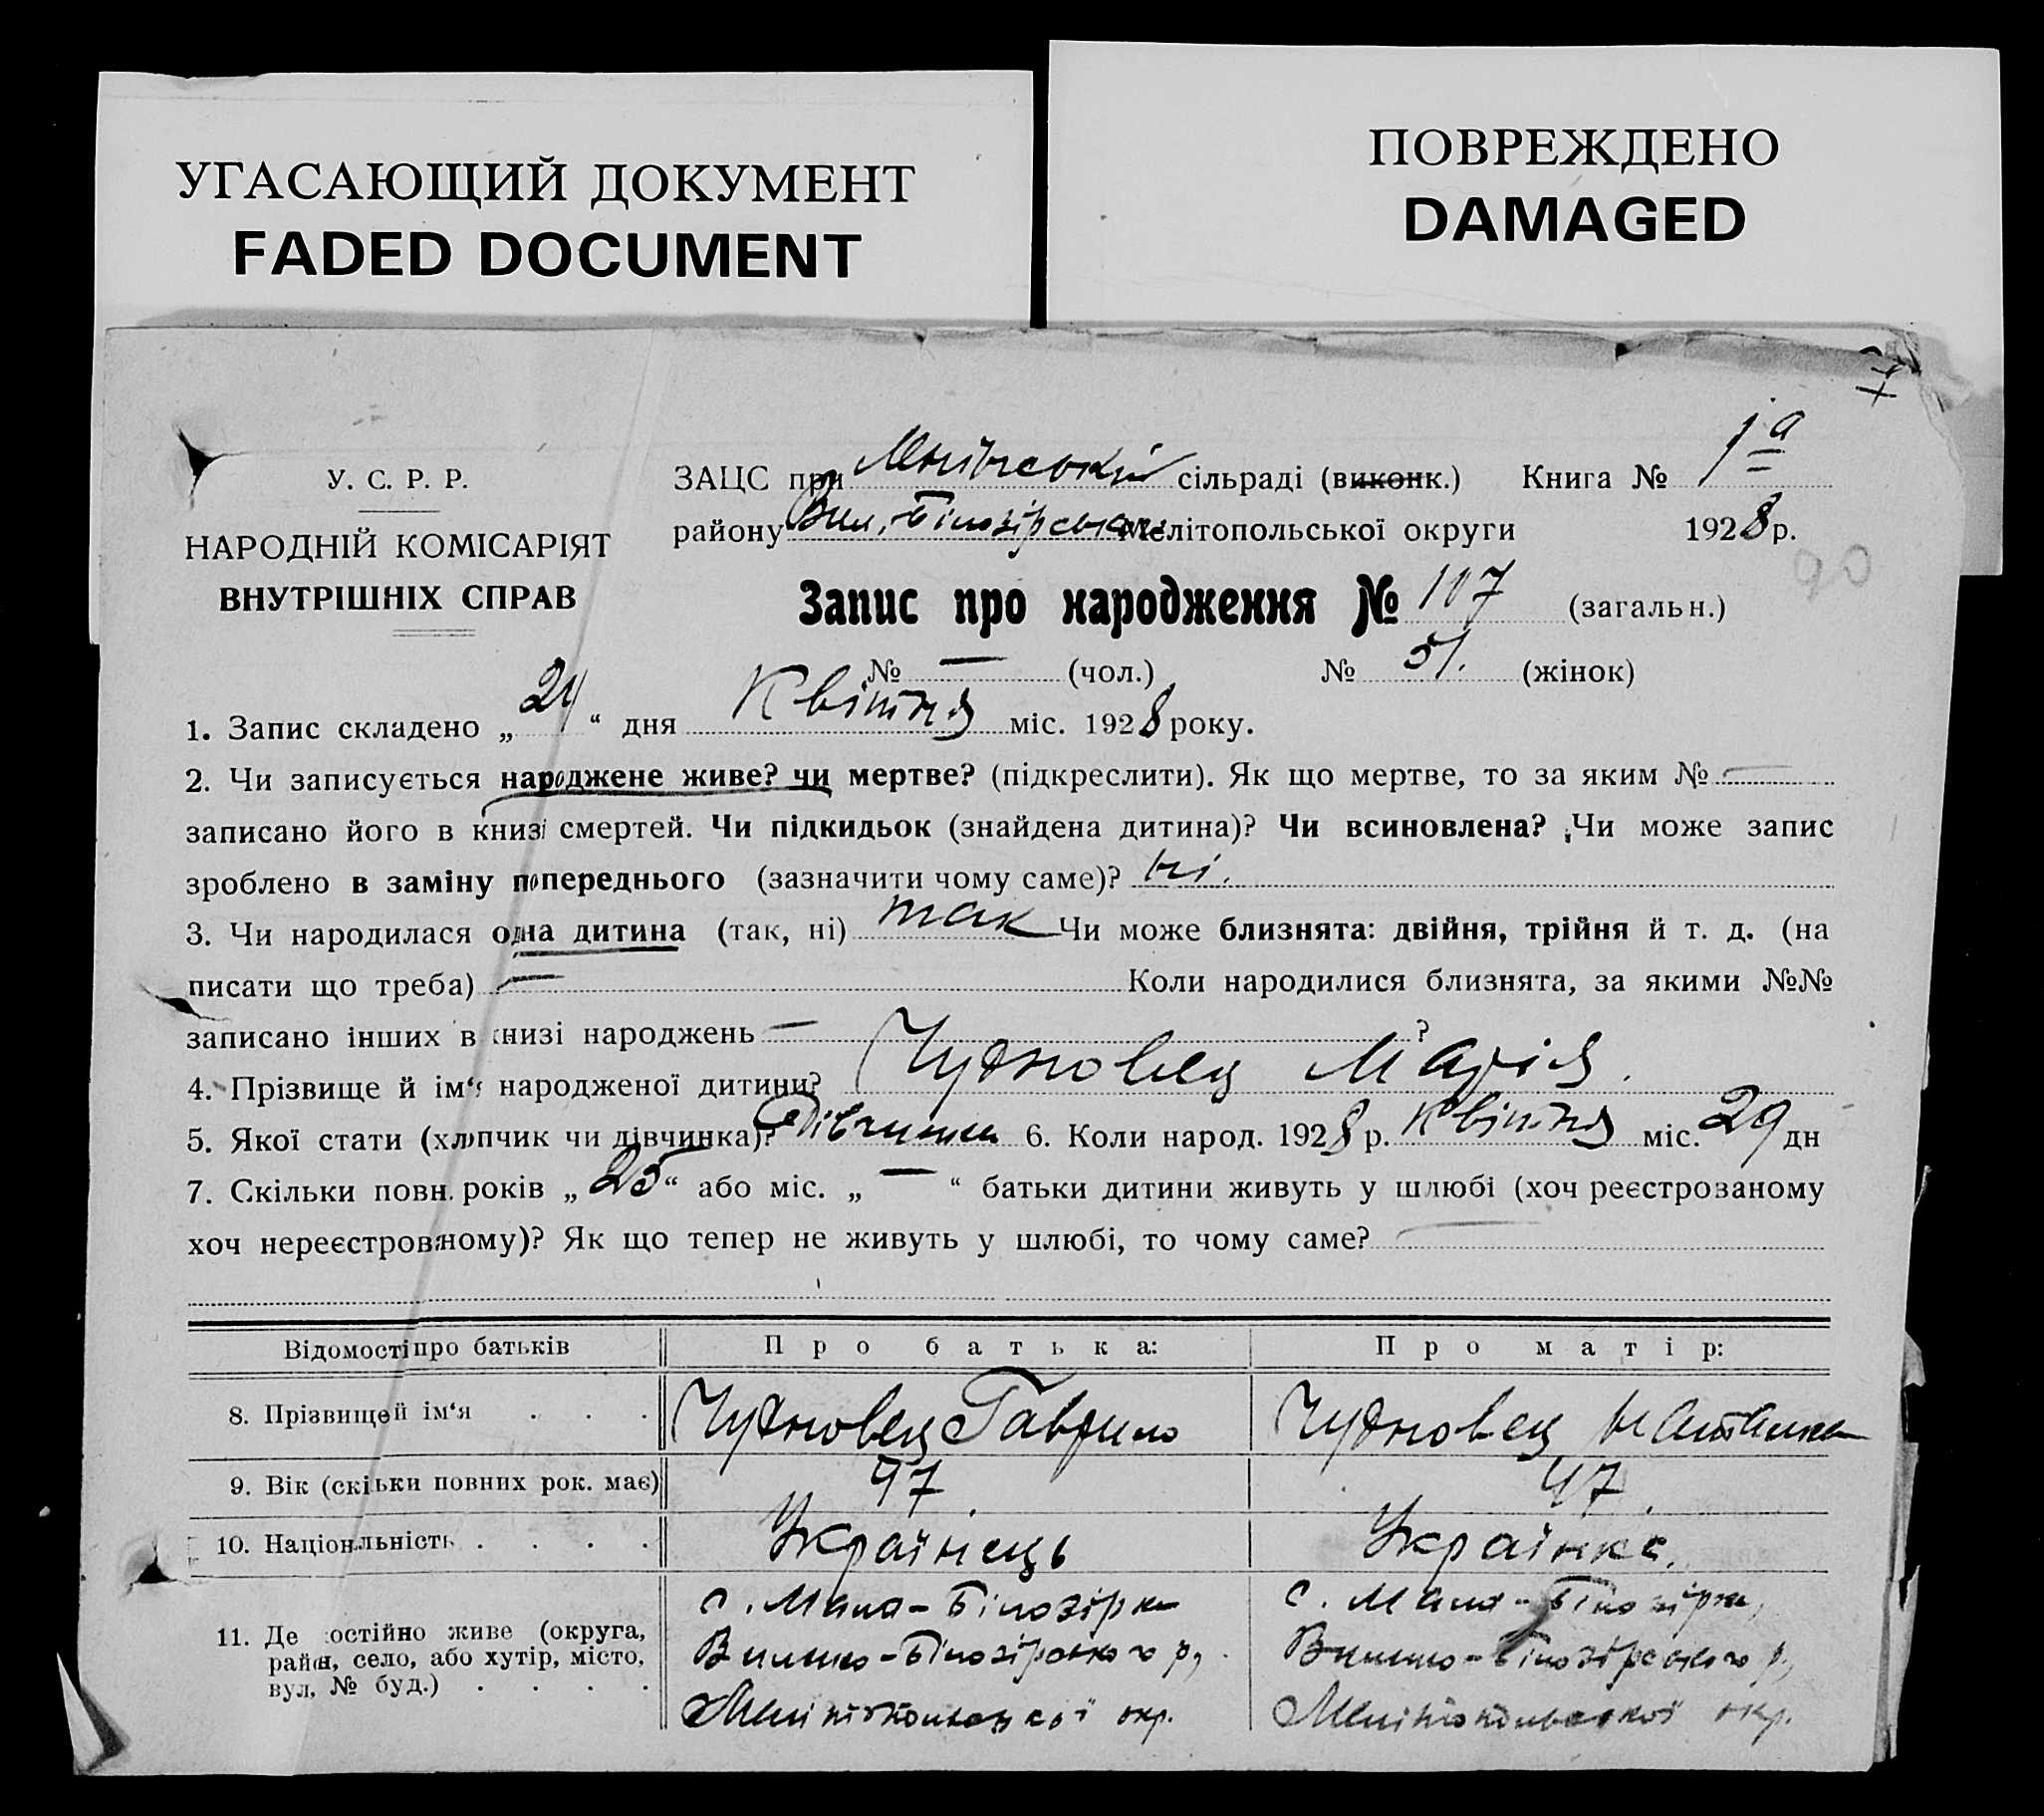 УГАСАЮЩИЙ ДОКУМЕНТ
FADED DOCUMENT
ПОВРЕЖДЕНО
DAMAGED
У. С. Р. Р.
НАРОДНІЙ КОМІСАРІЯТ
ВНУТРІШНІХ СПРАВ
ЗАЦС при сільраді (виконк.) Книга № 1а
району Вел. Білозірськ Мелітопольської округи 1928 р.
90
Запис про народження № 107 (загальн.)
№ — (чол.) № 51. (жінок)
1. Запис складено „24“ дня Квітня міс. 1928 року.
2. Чи записується народжене живе? чи мертве? (підкреслити). Як що мертве, то за яким № —
записано його в книзі смертей. Чи підкидьок (знайдена дитина)? Чи всиновлена? Чи може запис
зроблено в заміну попереднього (зазначити чому саме)? ні.
3. Чи народилася одна дитина (так, ні) так Чи може близнята: двійня, трійня й т. д. (на
писати що треба) — Коли народилися близнята, за якими №№
записано інших в книзі народжень — ?
4. Прізвище й ім‘я народженої дитини? Чудновец Марія.
5. Якої стати (хлопчик чи дівчинка)? Дівчинка 6. Коли народ. 1928 р. Квітня міс. 29 дн
7. Скільки повн. років „25“ або міс. „—“ батьки дитини живуть у шлюбі (хоч реєстрованому
хоч нереєстрованому)? Як що тепер не живуть у шлюбі, то чому саме? —
Відомості про батьків Про батька: Про матір:
8. Прізвище й ім‘я . . . Чудновец Гаврило Чудновец
9. Вік (скільки повних рок. має) 47. 47.
10. Національність . . . . Українець Українка.
11. Де постійно живе (округа, район, село, або хутір, місто, вул, № буд.) . . . .
с. Мала-Білозірка
Велико-Білозірського р,
Мелітопольської окр.
с. Мала-Білозірка,
Велико-Білозірського р,
Мелітопольської окр.